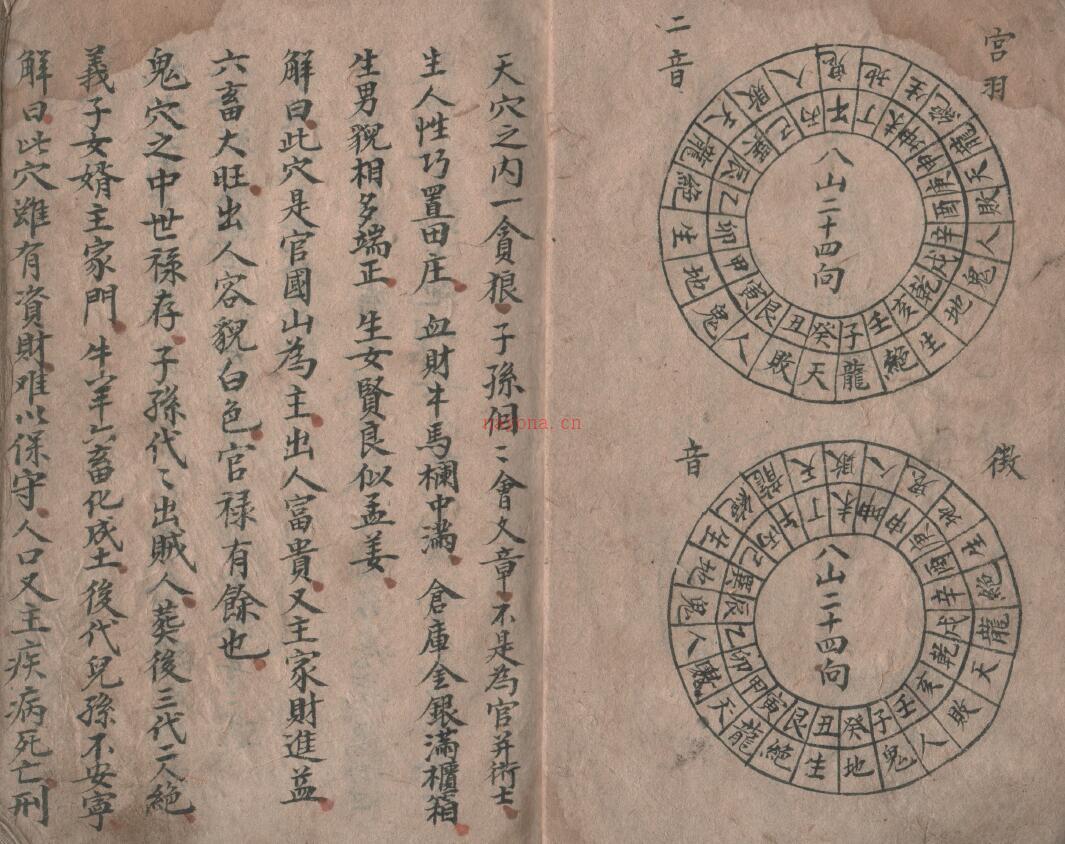 宮羽
二音
鬼地生絶龍天敗人鬼地生絶龍天敗人鬼地生絶龍天敗人
午丁未坤申庚酉辛戌乾亥壬子癸丑艮寅甲卯乙辰巽巳丙
八山二十四向
徵
音
敗人鬼地生絶龍天敗人鬼地生絶龍天敗人鬼地生絶龍天
未坤申庚酉辛戌乾亥壬子癸丑艮寅甲卯乙辰巽巳丙午丁
八山二十四向
天穴之内一貪狼子孫個〻會文章不是為官并術士
生人性巧置田庄血財牛馬欄中滿倉庫金銀滿櫃箱
生男貌相多端正生女賢良似孟姜
解曰此穴是官國山為主出人富貴又主家財進益
六畜大旺出人容貌白色官禄有餘也
鬼穴之中世禄存子孫代〻出賊人葬後三代二人絶
義子女婿主家門牛羊六畜化成土後代兒孫不安寧
解曰此穴雖有資財难以保守人口又主疾病死亡刑
rayona.cn